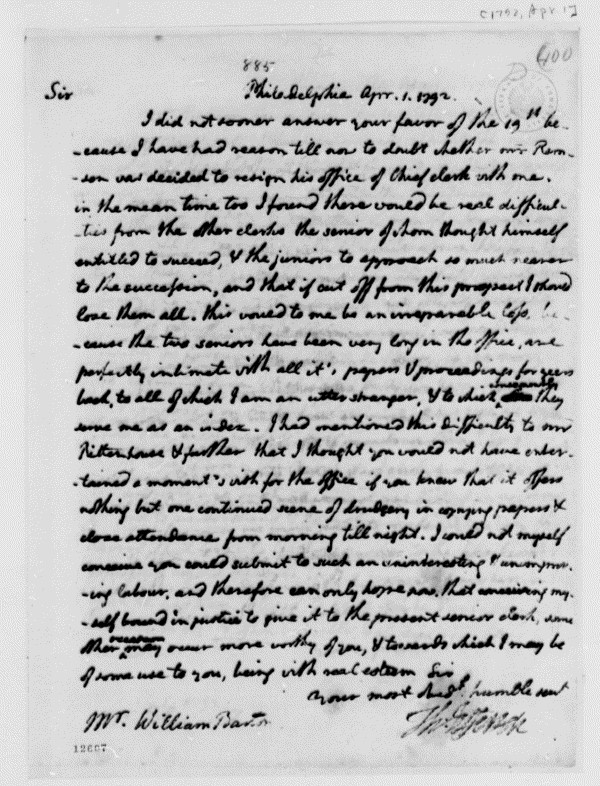 [1792, Apr 1]
400
885
Sir
Philadelphia Apr. 1. 1792.
I did not sooner answer your favor of the 19th be-
-cause I have had reason till now to doubt whether mr Rem-
-son was decided to resign his office of Chief clerk with one.
in the mean time too I found there would be real difficul-
-ties from the other clerks the senior of whom thought himself
entitled to succeed, & the juniors to approach so much nearer
to the succession, and that if cut off from this prospect I should
lose them all. this would to me be an irreparable loss, be-
-cause the two seniors have been very long in the office, are
perfectly intimate with all it's papers & proceedings for years
back, to all of which I am an utter stranger, & to which they
serve me as an index. I had mentioned this difficulty to mr
Rittenhouse & further that I thought you would not have enter-
-tained a moment's wish for the office if you knew that it offers
nothing but one continued scene of drudgery in copying papers &
close attendance from morning till night. I could not myself
conceive you could submit to such an uninteresting & unimprov-
-ing labour, and therefore can only hope now, that conceiving my-
-self bound in justice to give it to the present senior clerk, some
other occasion may occur more worthy of you, & towards which I may be
of some use to you, being with real esteem Sir
your most obedt. humble servt
Th: Jefferson
Mr. William Barton
12607